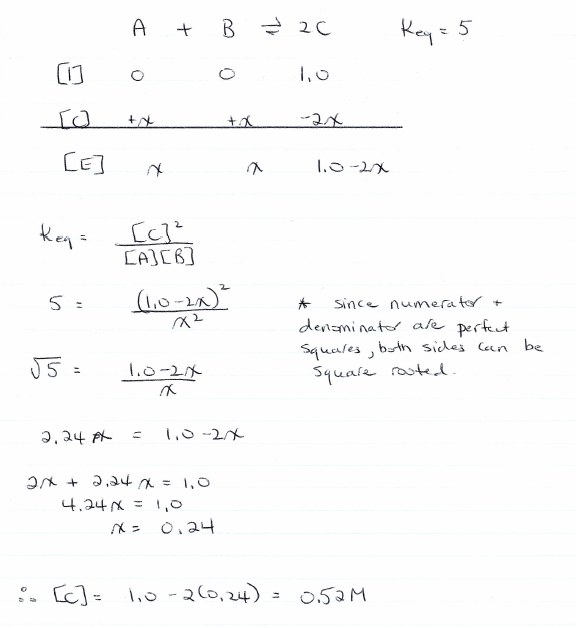 A + B ⇌ 2C Keq = 5
[I] 0 0 1.0
[C] +x +x -2x
[E] x x 1.0-2x
Keq = [C]²
[A][B]
5 = (1.0-2x)² * since numerator +
x² denominator are perfect
squares, both sides can be
√5 = 1.0-2x square rooted.
x
2.24x = 1.0-2x
2x + 2.24x = 1.0
4.24x = 1.0
x = 0.24
∴ [C] = 1.0 - 2(0.24) = 0.52M